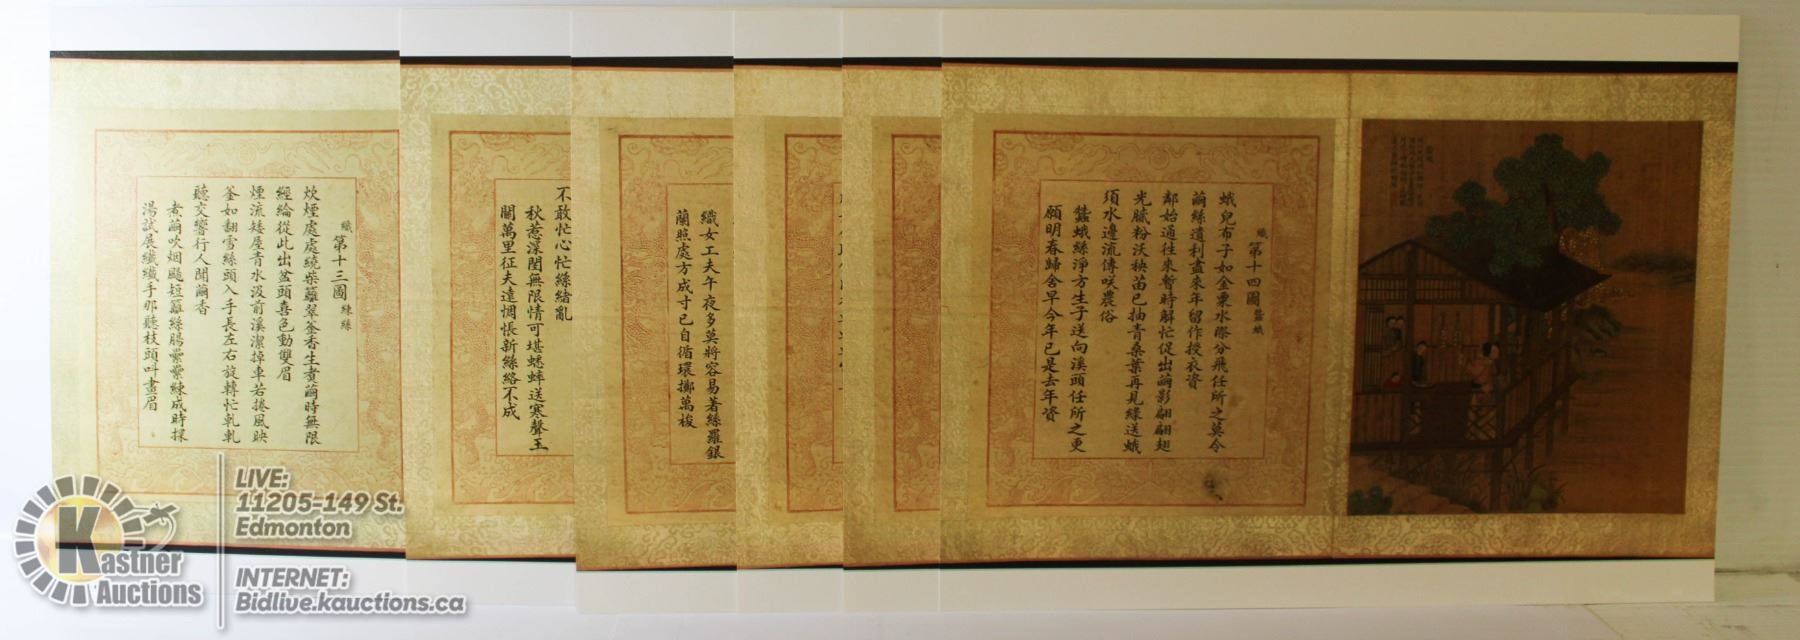 織 第十三圖 練絲
炊煙處處繞柴籬翠釜香生煑繭時無限
經綸從此出盆頭喜色動雙眉
煙流矮屋青水汲前溪潔掉車若捲風映
釜如翻雪絲頭入手長左右旋轉忙軋軋
聽交響行人聞繭香
煮繭吹烟颺短籬絲腸縈縈練成時探
湯試展纖纖手那聽枝頭呌畫眉
不敢忙心忙絲緒亂
秋惹深閨無限情可堪蟋蟀送寒聲玉
關萬里征夫遠惆悵新絲絡不成
織女工夫午夜多莫將容易著絲羅銀
蘭照處方成寸已自循環擲萬梭
織 第十四圖 蠶蛾
蛾兒布子如金粟水際分飛任所之莫令
繭絲遺利盡來年留作授衣資
鄰始通往來暫時解忙促出繭影翩翩翅
光膩粉沃秧苗已抽青桑葉再見緑送蛾
須水邊流傳咲農俗
蠶蛾絲淨方生子送向溪頭任所之更
願明春歸舍早今年已是去年資
Kastner
Auctions
LIVE:
11205-149 St.
Edmonton
INTERNET:
Bidlive.kauctions.ca